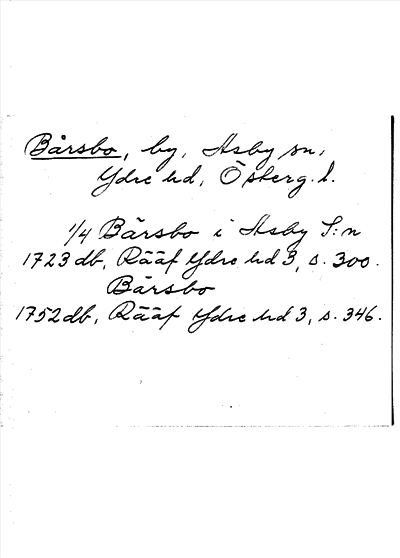 Bårsbo, by, Asby sn,
Ydre hd, Österg. l.
1/4 Bårsbo i Asby S:n
1723 db, Rääf Ydre hd 3, s. 300.
Bårsbo
1752 db, Rääf Ydre hd 3, s. 346.